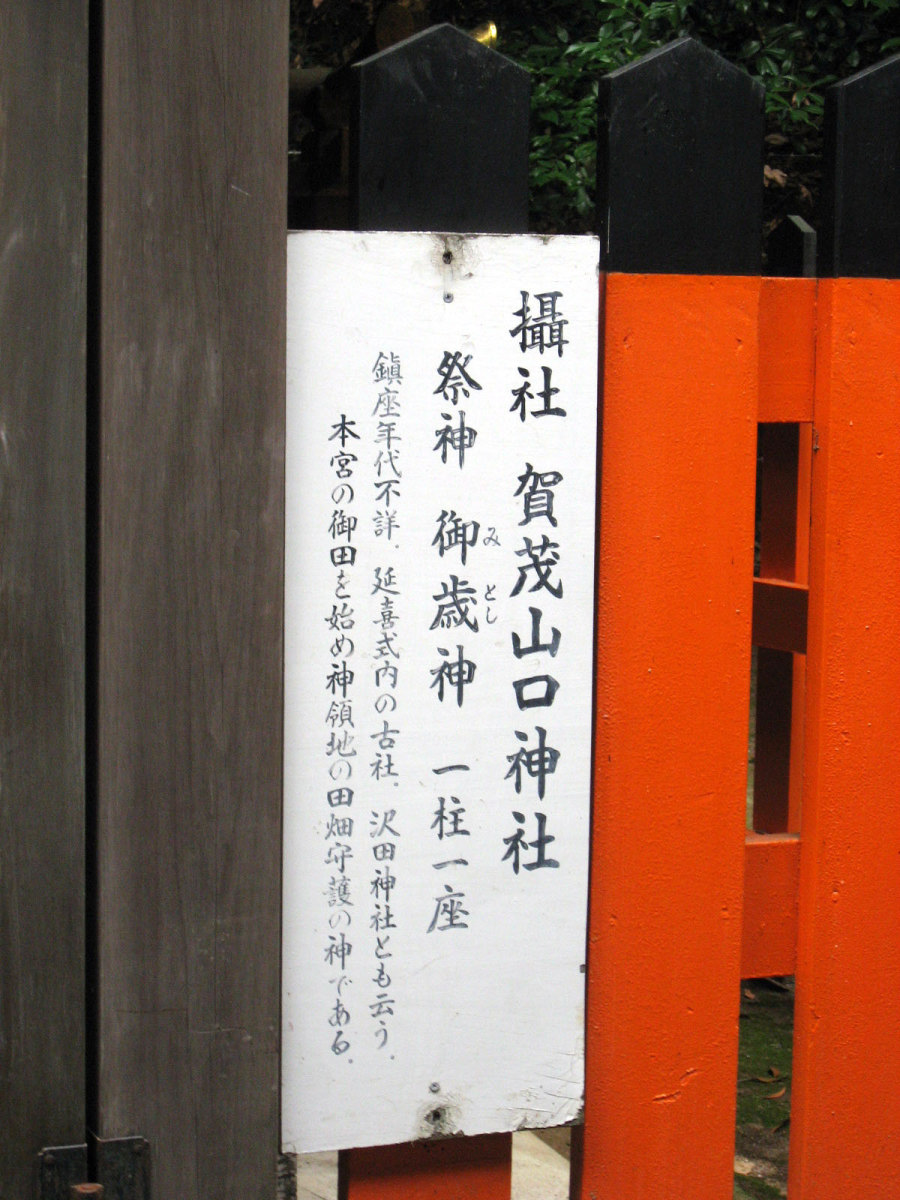 攝社 賀茂山口神社
祭神 御歳神 一柱一座
みとし
鎭座年代不詳. 延喜式内の古社. 沢田神社とも云う.
本宮の御田を始め神領地の田畑守護の神である.